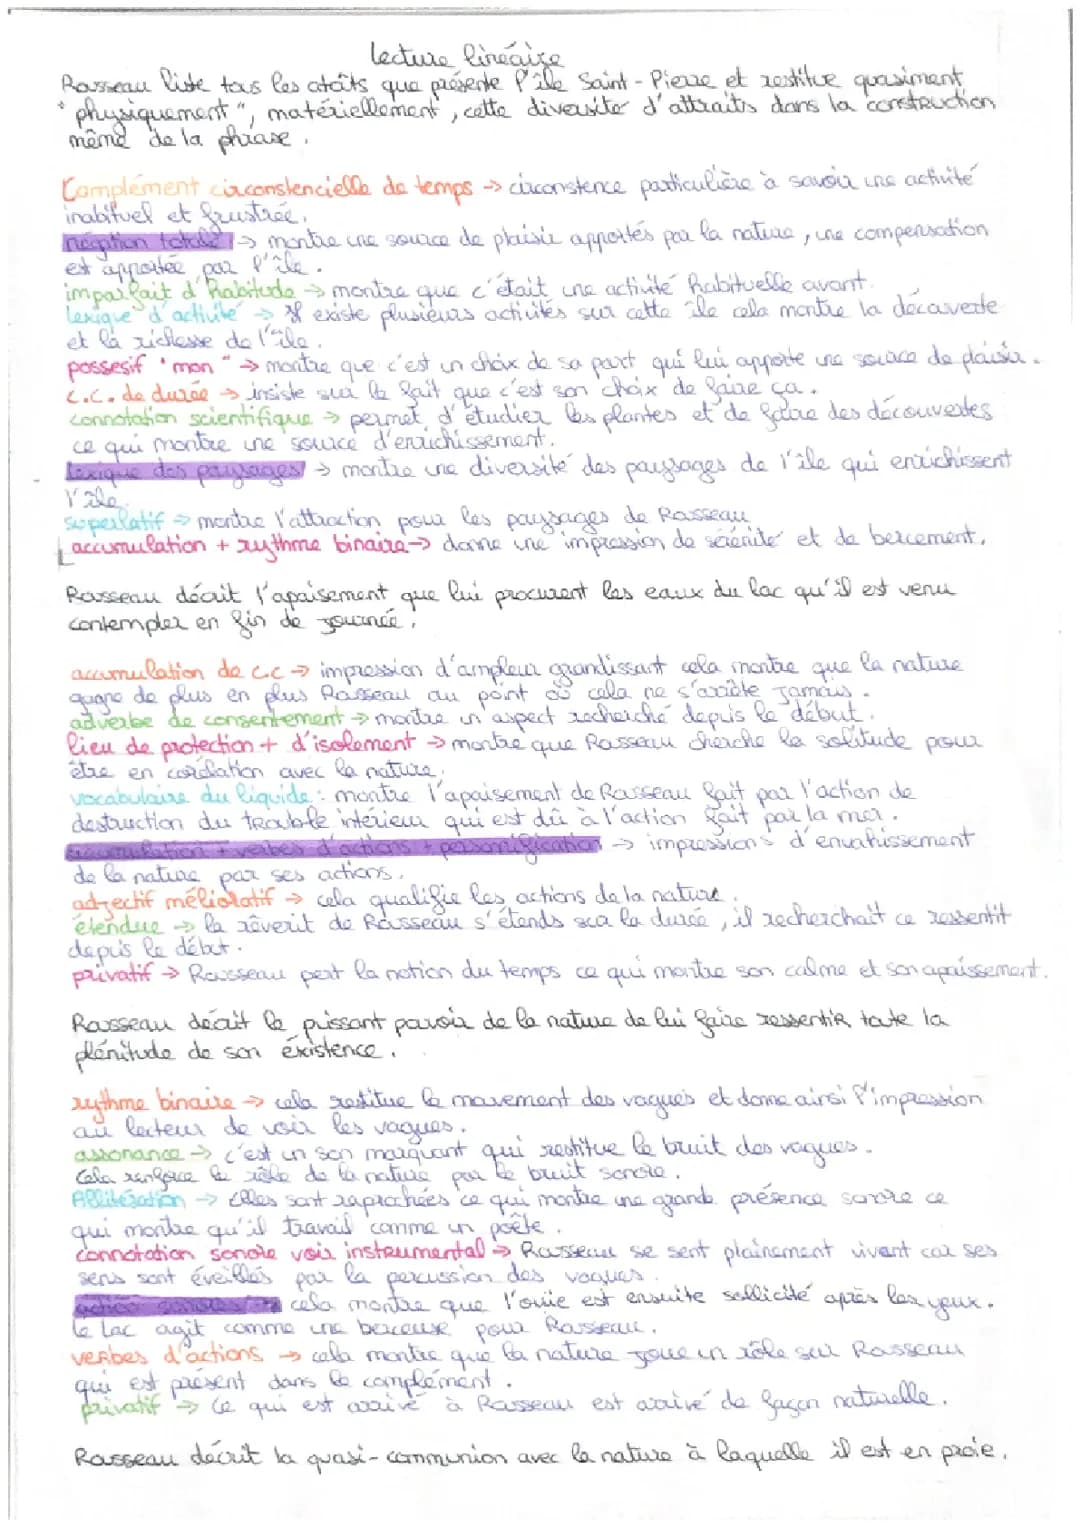 lecture linéaire
Rousseau liste tous les atouts que présente l'île Saint-Pierre et restitue quasiment
"physiquement", matériellement, cette diversité d'attraits dans la construction
même de la phrase.
Complément circonstencielle de temps → circonstence particulière à savoir une activité
inabituel et frustrée.
négation totale → montre une source de plaisir apportés par la nature, une compensation
est apportée par l'île.
imparfait d'habitude → montre que c'était une activité habituelle avant.
Lexique d'activité → Il existe plusieurs activités sur cette île cela montre la découverte
et la richesse de l'île.
possesif "mon" → montre que c'est un choix de sa part qui lui apporte une source de plaisir.
c.c. de durée → insiste sur le fait que c'est son choix de faire ça.
connotation scientifique → permet d'étudier les plantes et de faire des découvertes
ce qui montre une source d'enrichissement.
Lexique des paysages → montre une diversité des paysages de l'île qui enrichissent
l'île.
superlatif → montre l'attraction pour les paysages de Rousseau
accumulation + rythme binaire → donne une impression de sérénité et de bercement.
Rousseau décrit l'apaisement que lui procurent les eaux du lac qu'il est venu
contempler en fin de journée.
accumulation de c.c → impression d'ampleur grandissant cela montre que la nature
gagne de plus en plus Rousseau au point où cela ne s'arrête jamais.
adverbe de consentement → montre un aspect recherché depuis le début.
lieu de protection + d'isolement → montre que Rousseau cherche la solitude pour
être en corélation avec la nature.
vocabulaire du liquide : montre l'apaisement de Rousseau fait par l'action de
destruction du trouble intérieur qui est dû à l'action fait par la mer.
accumulation + verbes d'actions + personnification → impressions d'envahissement
de la nature par ses actions.
adjectif mélioratif → cela qualifie les actions de la nature.
étendue → la rêverit de Rousseau s'étends sur la durée, il recherchait ce ressentit
depuis le début.
privatif → Rousseau pert la notion du temps ce qui montre son calme et son apaissement.
Rousseau décrit le puissant pouvoir de la nature de lui faire ressentir toute la
plénitude de son éxistence.
rythme binaire → cela restitue le mouvement des vagues et donne ainsi l'impression
au lecteur de voir les vagues.
assonance → c'est un son marquant qui restitue le bruit des vagues.
Cela renforce le rôle de la nature par le bruit sonore.
Allitération → elles sont raprochées ce qui montre une grande présence sonore ce
qui montre qu'il travail comme un poète.
connotation sonore voir instrumental → Rousseau se sent plainement vivant car ses
sens sont éveillés par la percussion des vagues.
action sonores → cela montre que l'ouïe est ensuite sollicité après les yeux.
le lac agit comme une berceuse pour Rousseau.
verbes d'actions → cela montre que la nature joue un rôle sur Rousseau
qui est présent dans le complément.
privatif → ce qui est arrivé à Rousseau est arrivé de façon naturelle.
Rousseau décrit la quasi-communion avec la nature à laquelle il est en proie.